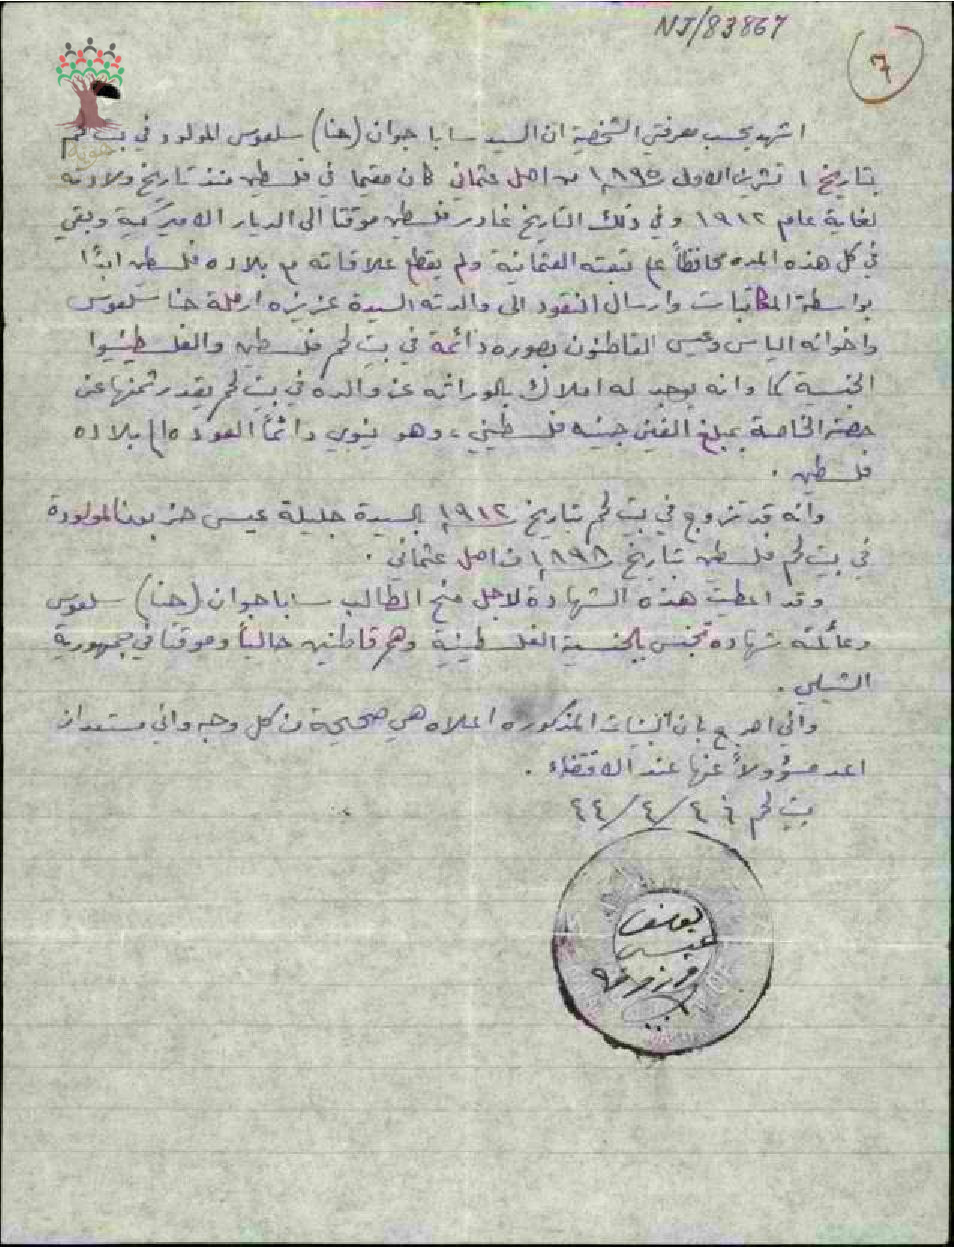 NJ/83867
7
اشهد بحسب معرفتي الشخصية ان السيد سابا جوان (حنا) سلعوس المولود في بيت لحم
هوية
بتاريخ ١ تشرين الاول ١٨٩٥ من اصل عثماني كان مقيما في فلسطين منذ تاريخ ولادته
لغاية عام ١٩١٢ وفي ذلك التاريخ غادر فلسطين موقتا الى الديار الاميركية وبقي
في كل هذه المده محافظاً على تبعته العثمانية ولم يقطع علاقاته مع بلاده فلسطين ابدًا
بواسطة المكاتبات وارسال النقود الى والدته السيدة عزيزه ارملة حنا سلعوس
واخوانه الياس وعيسى القاطنون بصوره دائمة في بيت لحم فلسطين والفلسطينيوا
الجنسة كما وانه يوجد له املاك بالوراثه عن والده في بيت لحم يقدر ثمنها عن
حصته الخاصة بمبلغ الفين جنيه فلسطيني، وهو ينوي دائماً العوده الى بلاده
فلسطين .
وانه قد تزوج في بيت لحم بتاريخ ١٩١٢ بالسيدة جليلة عيسى حزبون المولودة
في بيت لحم فلسطين بتاريخ ١٨٩٨ من اصل عثماني .
وقد اعطيت هذه الشهادة لاجل منح الطالب سابا جوان (حنا) سلعوس
وعائلته شهادة تجنس بالجنسية الفلسطينية وهم قاطنين حالياً وموقتا في جمهورية
الشيلي .
واني اصرح بان البينات المذكوره اعلاه هي صحيحة من كل وجه واني مستعد ان
اعد مسؤولاً عنها عند الاقتضاء .
بيت لحم ٤٤/٤/
يوسف
عيسى